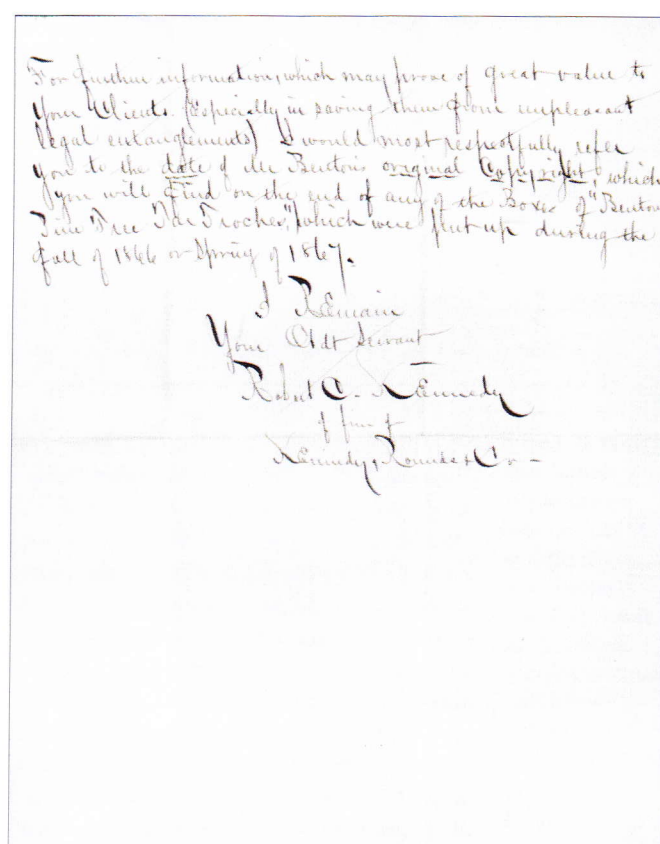 For further information, which may prove of great value to
your Clients (Especially in saving them from unpleasant
legal entanglements) I would most respectfully refer
you to the date of Mr Benton's original Copyright, which
you will find on the end of any of the Boxes of "Benton's
Pine Tree Tar Troches," which were put up during the
fall of 1866 or Spring of 1867.
I Remain
Your Obdt Servant
Robert C. Kennedy
of firm of
Kennedy, & Co -